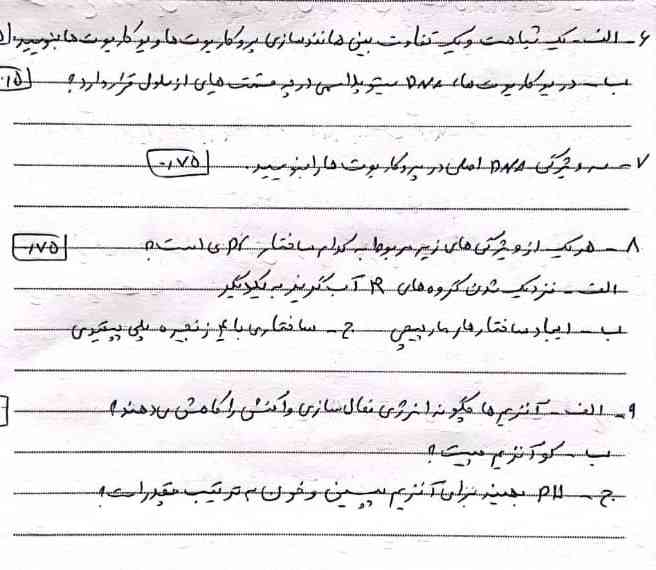 ۶- الف- یک شباهت و یک تفاوت بین همانندسازی پروکاریوت ها و یوکاریوت ها بنویسید.
ب- در یوکاریوت ها، DNA سیتوپلاسمی در چه قسمت هایی از سلول قرار دارد؟ ۰/۵
۷- سه ویژگی DNA اصلی در پروکاریوت ها را بنویسید. ۰/۷۵
۸- هر یک از ویژگی های زیر مربوط به کدام ساختار است؟ ۰/۷۵
الف- نزدیک شدن گروه های R آب گریز به یکدیگر
ب- ایجاد ساختار مارپیچی ج- ساختاری با ۴ زنجیره پلی پپتیدی
۹- الف- آنزیم ها چگونه انرژی فعال سازی واکنش را کاهش می دهند؟
ب- کوآنزیم چیست؟
ج- PH بهینه برای آنزیم پپسین و خون به ترتیب چقدر است؟